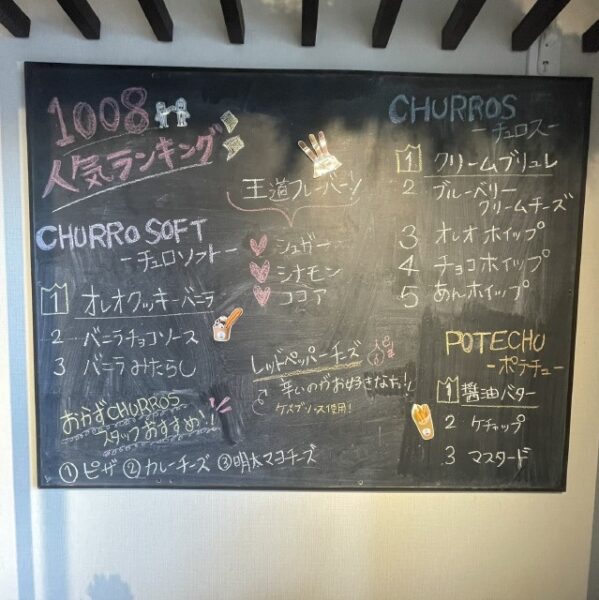 1008
人気ランキング
CHURRO SOFT
ーチュロソフトー
1 オレオクッキーバニラ
2 バニラチョコソース
3 バニラみたらし
おかずCHURROS
スタッフおすすめ!!
① ピザ ② カレーチーズ ③ 明太マヨチーズ
王道フレーバー!
シュガー
シナモン
ココア
レッドペッパーチーズ
辛いのがお好きな方!!
ケバブソース使用!
CHURROS
ーチュロスー
1 クリームブリュレ
2 ブルーベリー
クリームチーズ
3 オレオホイップ
4 チョコホイップ
5 あんホイップ
POTECHU
ーポテチューー
1 醤油バター
2 ケチャップ
3 マスタード